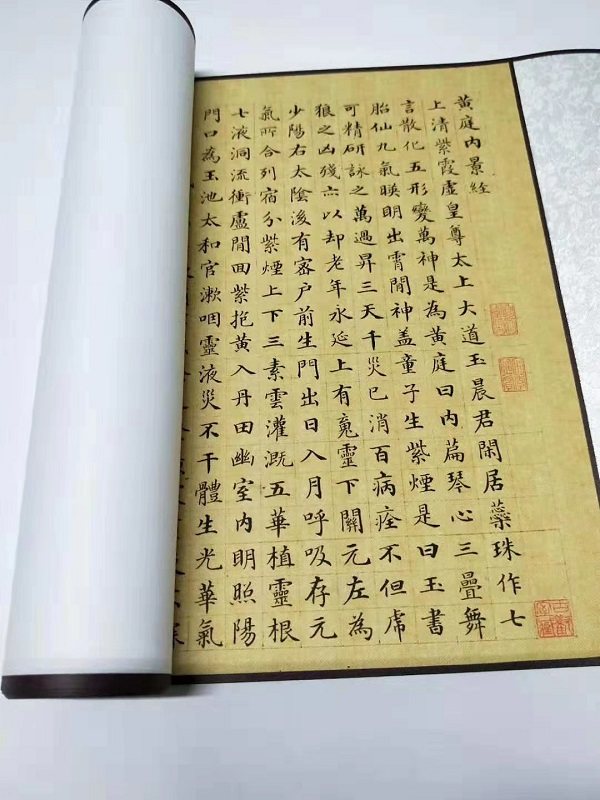 黃庭內景経
上清紫霞虛皇尊太上大道玉晨君閑居蘂珠作七
言散化五形變萬神是為黃庭曰內篇琴心三疊舞
胎仙九氣暎明出霄間神盖童子生紫煙是曰玉書
可精研詠之萬過昇三天千災已消百病痊不但虎
狼之凶殘亦以却老年永延上有䰟靈下關元左為
少陽右太陰後有密户前生門出日入月呼吸存元
氣所合列宿分紫煙上下三素雲灌溉五華植靈根
七液洞流衝廬間回紫抱黃入丹田幽室內明照陽
門口為玉池太和官漱咽靈液災不干體生光華氣